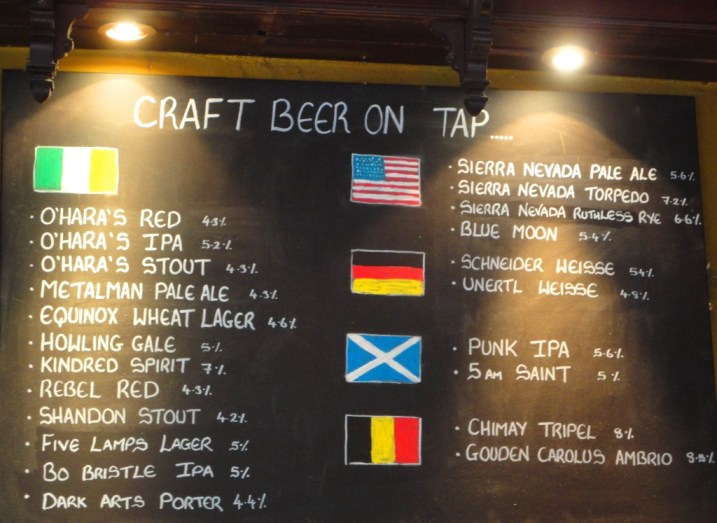 CRAFT BEER ON TAP.....
· O'HARA'S RED 4.3%
· O'HARA'S IPA 5.2%
· O'HARA'S STOUT 4.3%
· METALMAN PALE ALE 4.3%
· EQUINOX WHEAT LAGER 4.6%
· HOWLING GALE 5%
· KINDRED SPIRIT 7%
· REBEL RED 4.3%
· SHANDON STOUT 4.2%
· FIVE LAMPS LAGER 5%
· BO BRISTLE IPA 5%
· DARK ARTS PORTER 4.4%
· SIERRA NEVADA PALE ALE 5.6%
· SIERRA NEVADA TORPEDO 7.2%
· SIERRA NEVADA RUTHLESS RYE 6.6%
· BLUE MOON 5.4%
· SCHNEIDER WEISSE 5.4%
· UNERTL WEISSE 4.8%
· PUNK IPA 5.6%
· 5AM SAINT 5%
· CHIMAY TRIPEL 8%
· GOUDEN CAROLUS AMBRIO